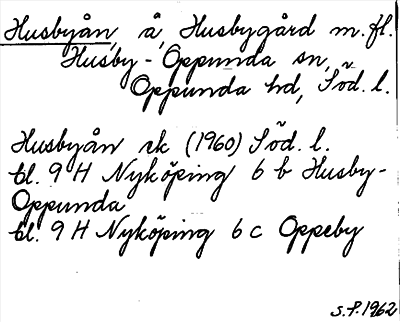 Husbyån, å, Husbygård m.fl.
Husby-Oppunda sn,
Oppunda hd, Söd. l.
Husbyån ek (1960) Söd. l.
bl. 9 H Nyköping 6 b Husby-
Oppunda
bl. 9 H Nyköping 6 c Oppeby
S.P. 1962